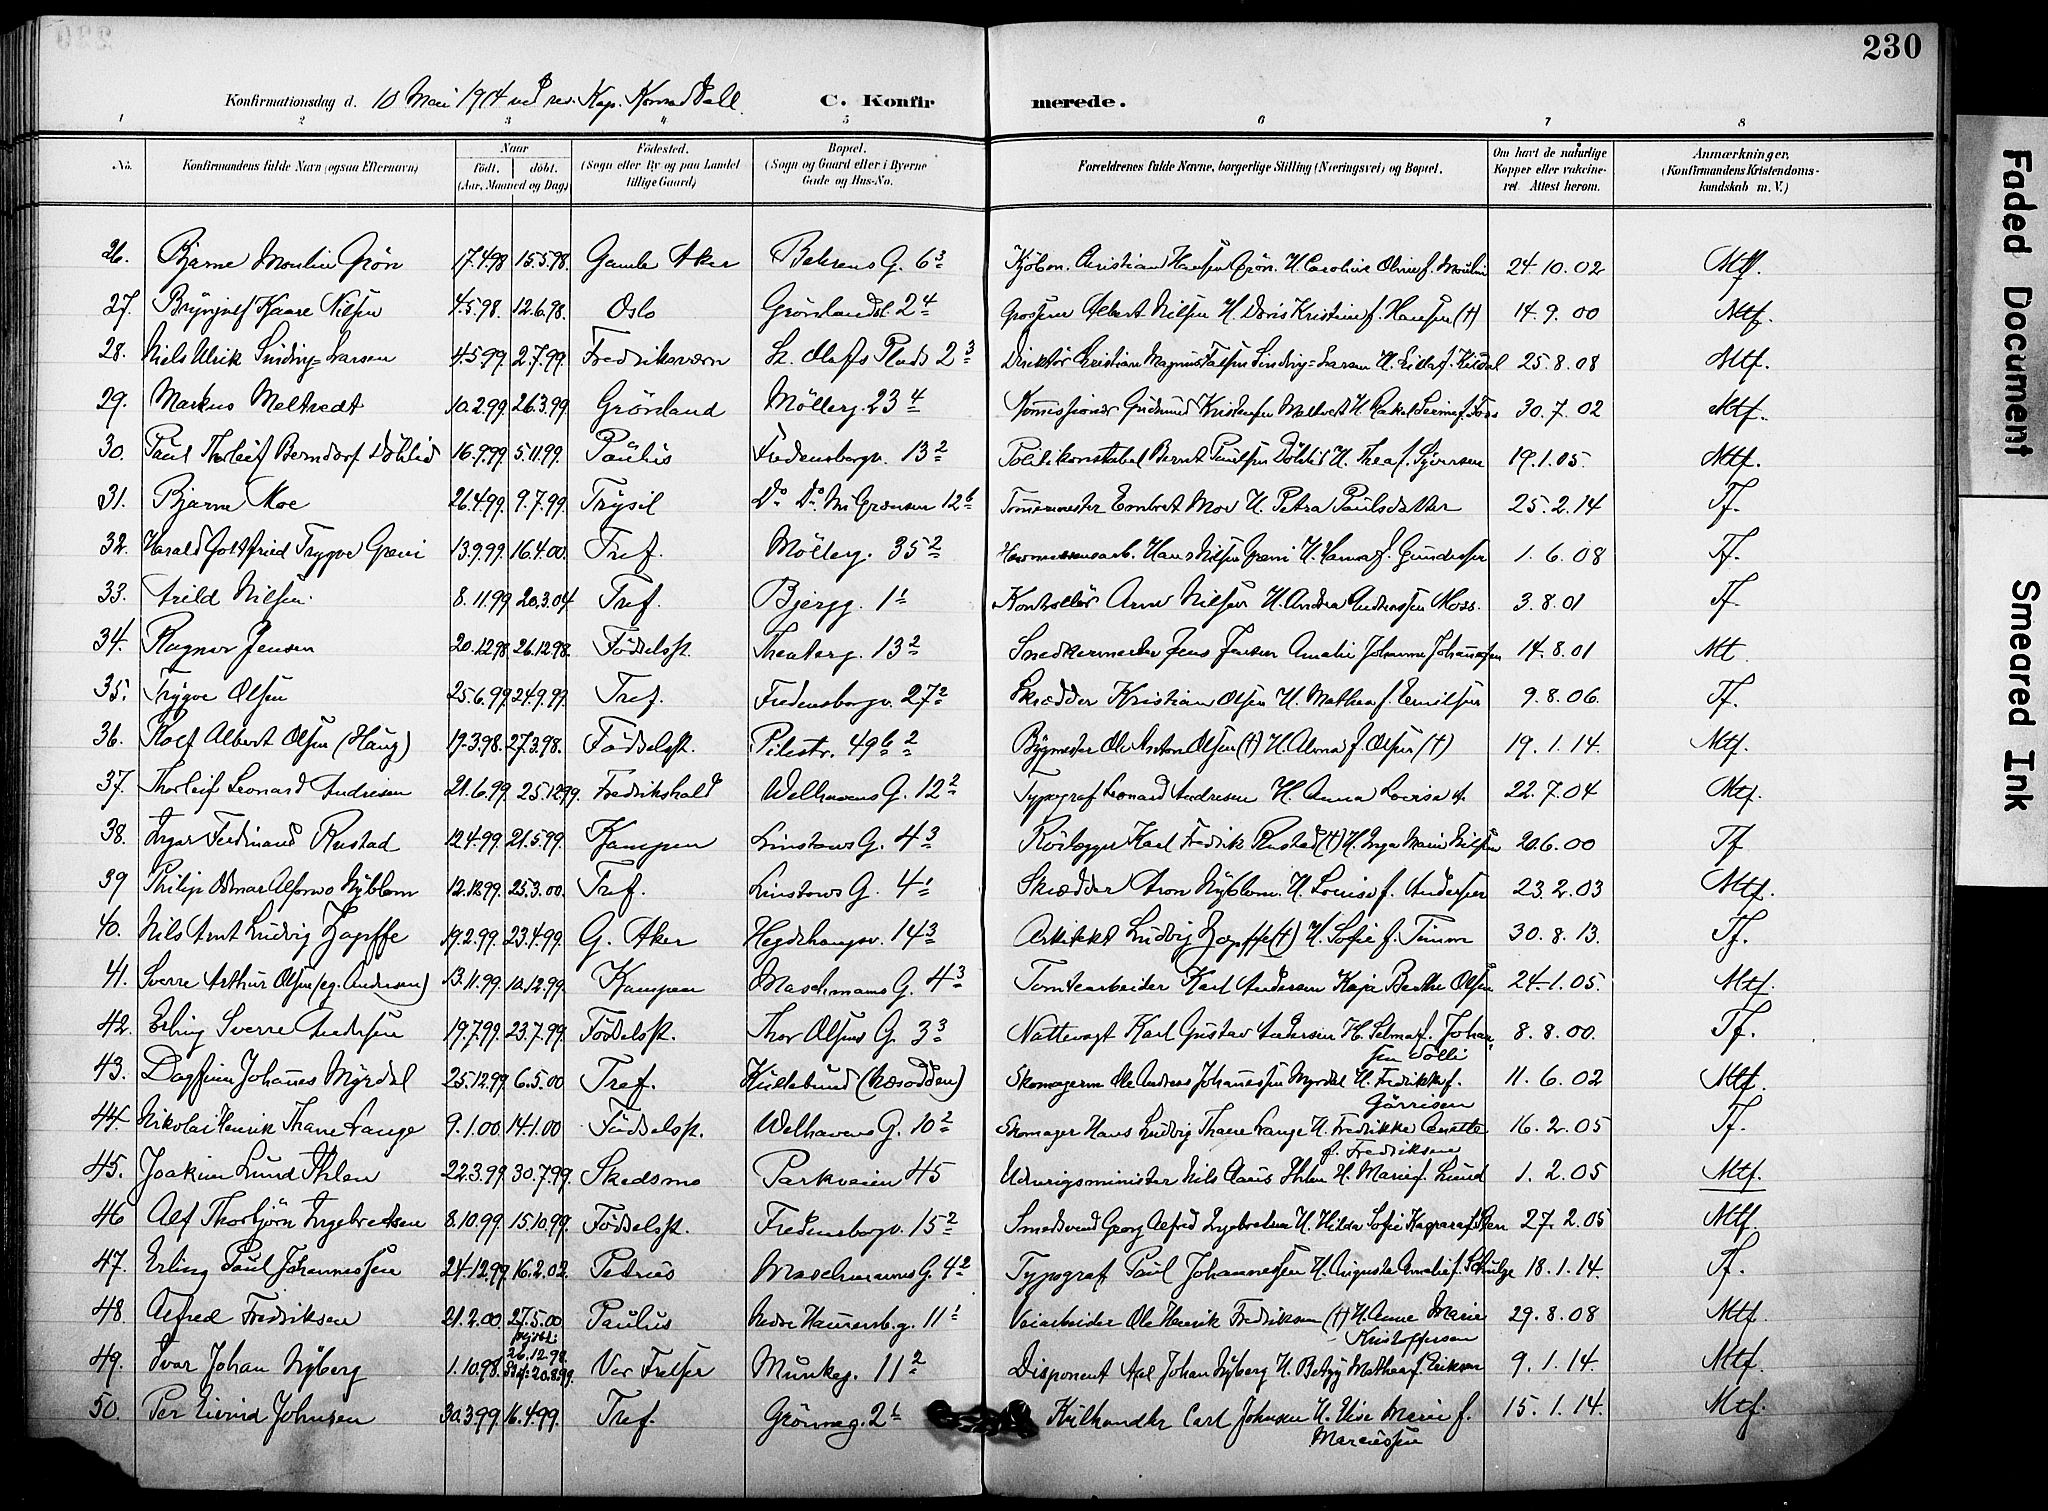 230
Konfirmationsdag d. 10 Mai 1914 ved res. Kap. Konrad Dall. C. Konfirmerede.
1 2 3 4 5 6 7 8
No. Konfirmandens fulde Navn (ogsaa Efternavn) Naar født. døbt. (Aar, Maaned og Dag) Fødested. (Sogn eller By og paa Landet tillige Gaard) Bopæl. (Sogn og Gaard eller i Byerne Gade og Hus-No. Forældrenes fulde Navne, borgerlige Stilling (Næringsvei) og Bopæl. Om havt de naturlige Kopper eller vakcineret Attest herom. Anmærkninger. (Konfirmandens Kristendomskundskab m. V.)
26. Bjarne Moulin Grön 17.4.98 15.5.98. Gamle Aker Behrens G. 6 3 Kjöbm. Christian Hansen Grön H. Caroline Oline f. Moulin 24.10.02 Mtf.
27. Brynjulf Kaare Nilsen 4.5.98. 12.6.98. Oslo Grönlandsl. 24 Grosserer Albert Nilsen H. Doris Kristine f. Hansen (†) 14.9.00 Mtf.
28. Niels Ulrik Sinding-Larsen 4.5.99 2.7.99. Fredriksværn St. Olafs Plads 2 3 Direktör Kristian Magnus Falsen Sinding-Larsen H. f. Kildal 25.8.08 Mtf.
29. Markus Meltvedt 10.2.99. 26.3.99. Grönland Möllerg. 23 4 Kommissionær Gudmund Kristensen Meltvedt H. Rakel f. Foss 30.7.02 Mtf.
30. Paul Thorleif Berndorf Döhlid 16.9.99. 5.11.99. Paulus Fredensborgv. 13 2 Politikonstabel Bernt Paulsen Döhlid H. Thea f. Syversen 19.1.05. Mtf.
31. Bjarne Moe 26.4.99. 9.7.99. Trysil Do Do Grænsen 12 b Tömmermester Embret Moe H. Petra Paulsdatter 25.2.14 Tf.
32. Harald Gottfried Trygve Greni 13.9.99. 16.4.00. Tref. Möllerg. 35 2 Hans Nilsen Greni H. Hanna f. Gundersen 1.6.08 Tf.
33. Arild Nilsen. 8.11.99. 20.3.04 Tref. Bjergg. 1 1 Kontrollör Arne Nilsen H. Andrea Andreassen Moss. 3.8.01 Tf.
34. Ragnar Jensen 20.12.98. 26.12.98. Födselsst. Theaterg. 13 2 Snedkermester Jens Jensen Amalie Johanne Johannesen 14.8.01 Mt.
35. Trygve Olsen 25.6.99 24.9.99. Tref. Fredensborgv. 27 2 Skrædder Kristian Olsen H. Mathea f. Emilsen 9.8.06. Tf.
36. Rolf Albert Olsen (Haug) 19.3.98. 27.3.98. Födselsst. Pilestr. 49 b 2 Bygmester Ole Anton Olsen (†) H. Alma f. Olsen (†) 19.1.14. Mtf.
37. Thorleif Leonard Andresen 21.6.99. 25.12.99. Fredrikshald Welhavens G. 12 2 Typograf Leonard Andresen H. Anna Lovise 22.7.04 Mtf.
38. Ingar Ferdinand Rustad 12.4.99. 21.5.99. Kampen Linstows G. 4 3 Rörlægger Karl Fredrik Rustad (†) H. Inga Marie Nilsen 20.6.00 Tf
39 Philip Odmar Alfonso Nyblom 12.12.99. 25.3.00. Tref. Linstows G. 4 1 Skrædder Aron Nyblom. H. Louise f. Andersen 23.2.03 Mtf.
40. Nils Arnt Ludvig Zapffe 19.2.99. 23.4.99. G. Aker Hegdehaugsv. 14 3 Arkitekt Ludvig Zapffe (†) H. Sofie f. Timm 30.8.13. Tf.
41. Sverre Arthur Olsen (eg. Andersen) 13.11.99. 10.12.99. Kampen Maschmanns G. 4 3 Tomtearbeider Karl Andersen Kaja Berthe Olsen 24.1.05. Mtf.
42. Erling Sverre Andersen 19.7.99. 23.7.99. Födselsst. Thor Olsens G. 3 3 Nattevagt Karl Gustav Andersen H. Selma f. Johansen Solli 8.8.00. Tf.
43. Dagfinn Johannes Myrdal 25.12.99. 6.5.00 Tref. Hullebund (Næsodden) Skomagerm. Ole Andreas Johannessen Myrdal H. Fredrikke f. Görrisen 11.6.02 Mtf.
44. Nikolai Henrik Thane Lange 9.1.00. 14.1.00. Födselsst. Welhavens G. 10 2 Skomager Hans Ludvig Thane Lange H. Fredrikke Anette f. Fredriksen 16.2.05 Tf.
45. Joakim Lund Ihlen 22.3.99. 30.7.99. Skedsmo Parkveien 45 Udenrigsminister Nils Claus Ihlen H. Marie f. Lund 1.2.05 Mtf.
46 Alf Thorbjörn Ingebretsen 8.10.99. 15.10.99. Födselsst. Fredensborgv. 15 2 Smedsvend Georg Alfred Ingebretsen H. Hilda Sofie 27.2.05 Mtf.
47. Erling Paul Johannessen 24.12.99. 16.2.02. Petrus Maschmanns G. 4 2 Typograf Paul Johannessen H. Augusta Amalie f. Schulze 18.1.14. Tf.
48. Alfred Fredriksen 21.2.00. 27.5.00 Paulus Nedre Hausmannsg. 11 1 Veiarbeider Ole Henrik Fredriksen (†) H. Anne Marie Kristoffersen 29.8.08 Mtf.
49. Ivar Johan Nyberg 1.10.98. 26.12.98. 20.8.99. Vor Frelser Munkeg. 11 2 Disponent Axel Johan Nyberg H. Betzy Mathea f. Eriksen 9.1.14. Mtf.
50. Per Eivind Johnsen 30.3.99. 16.4.99. Tref. Grönneg. 2 1 Kulhandler Carl Johnsen H. Elise Marie f. Marcussen 15.1.14. Mtf.
Faded Document
Smeared Ink